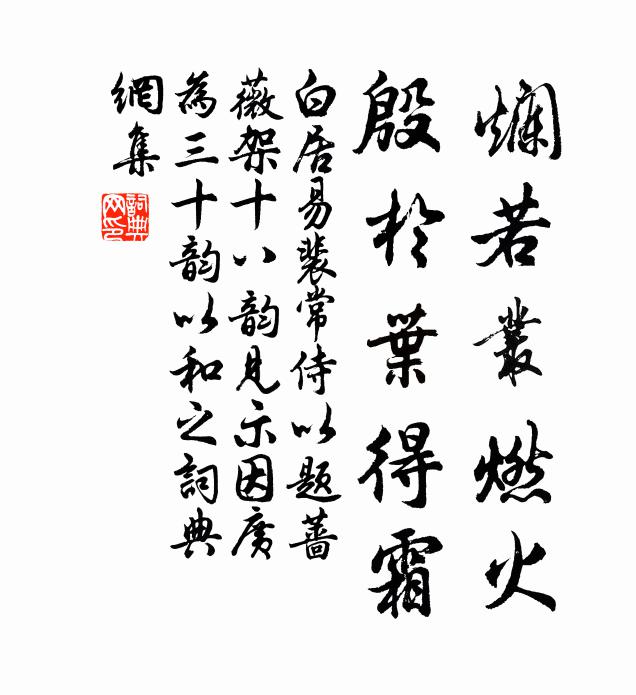 爛若叢燃火
殷於葉得霜
白居易裴常侍以题蔷
薇架十八韵見示因廣
為三十韵以和之詞典
網集
詞典
网印